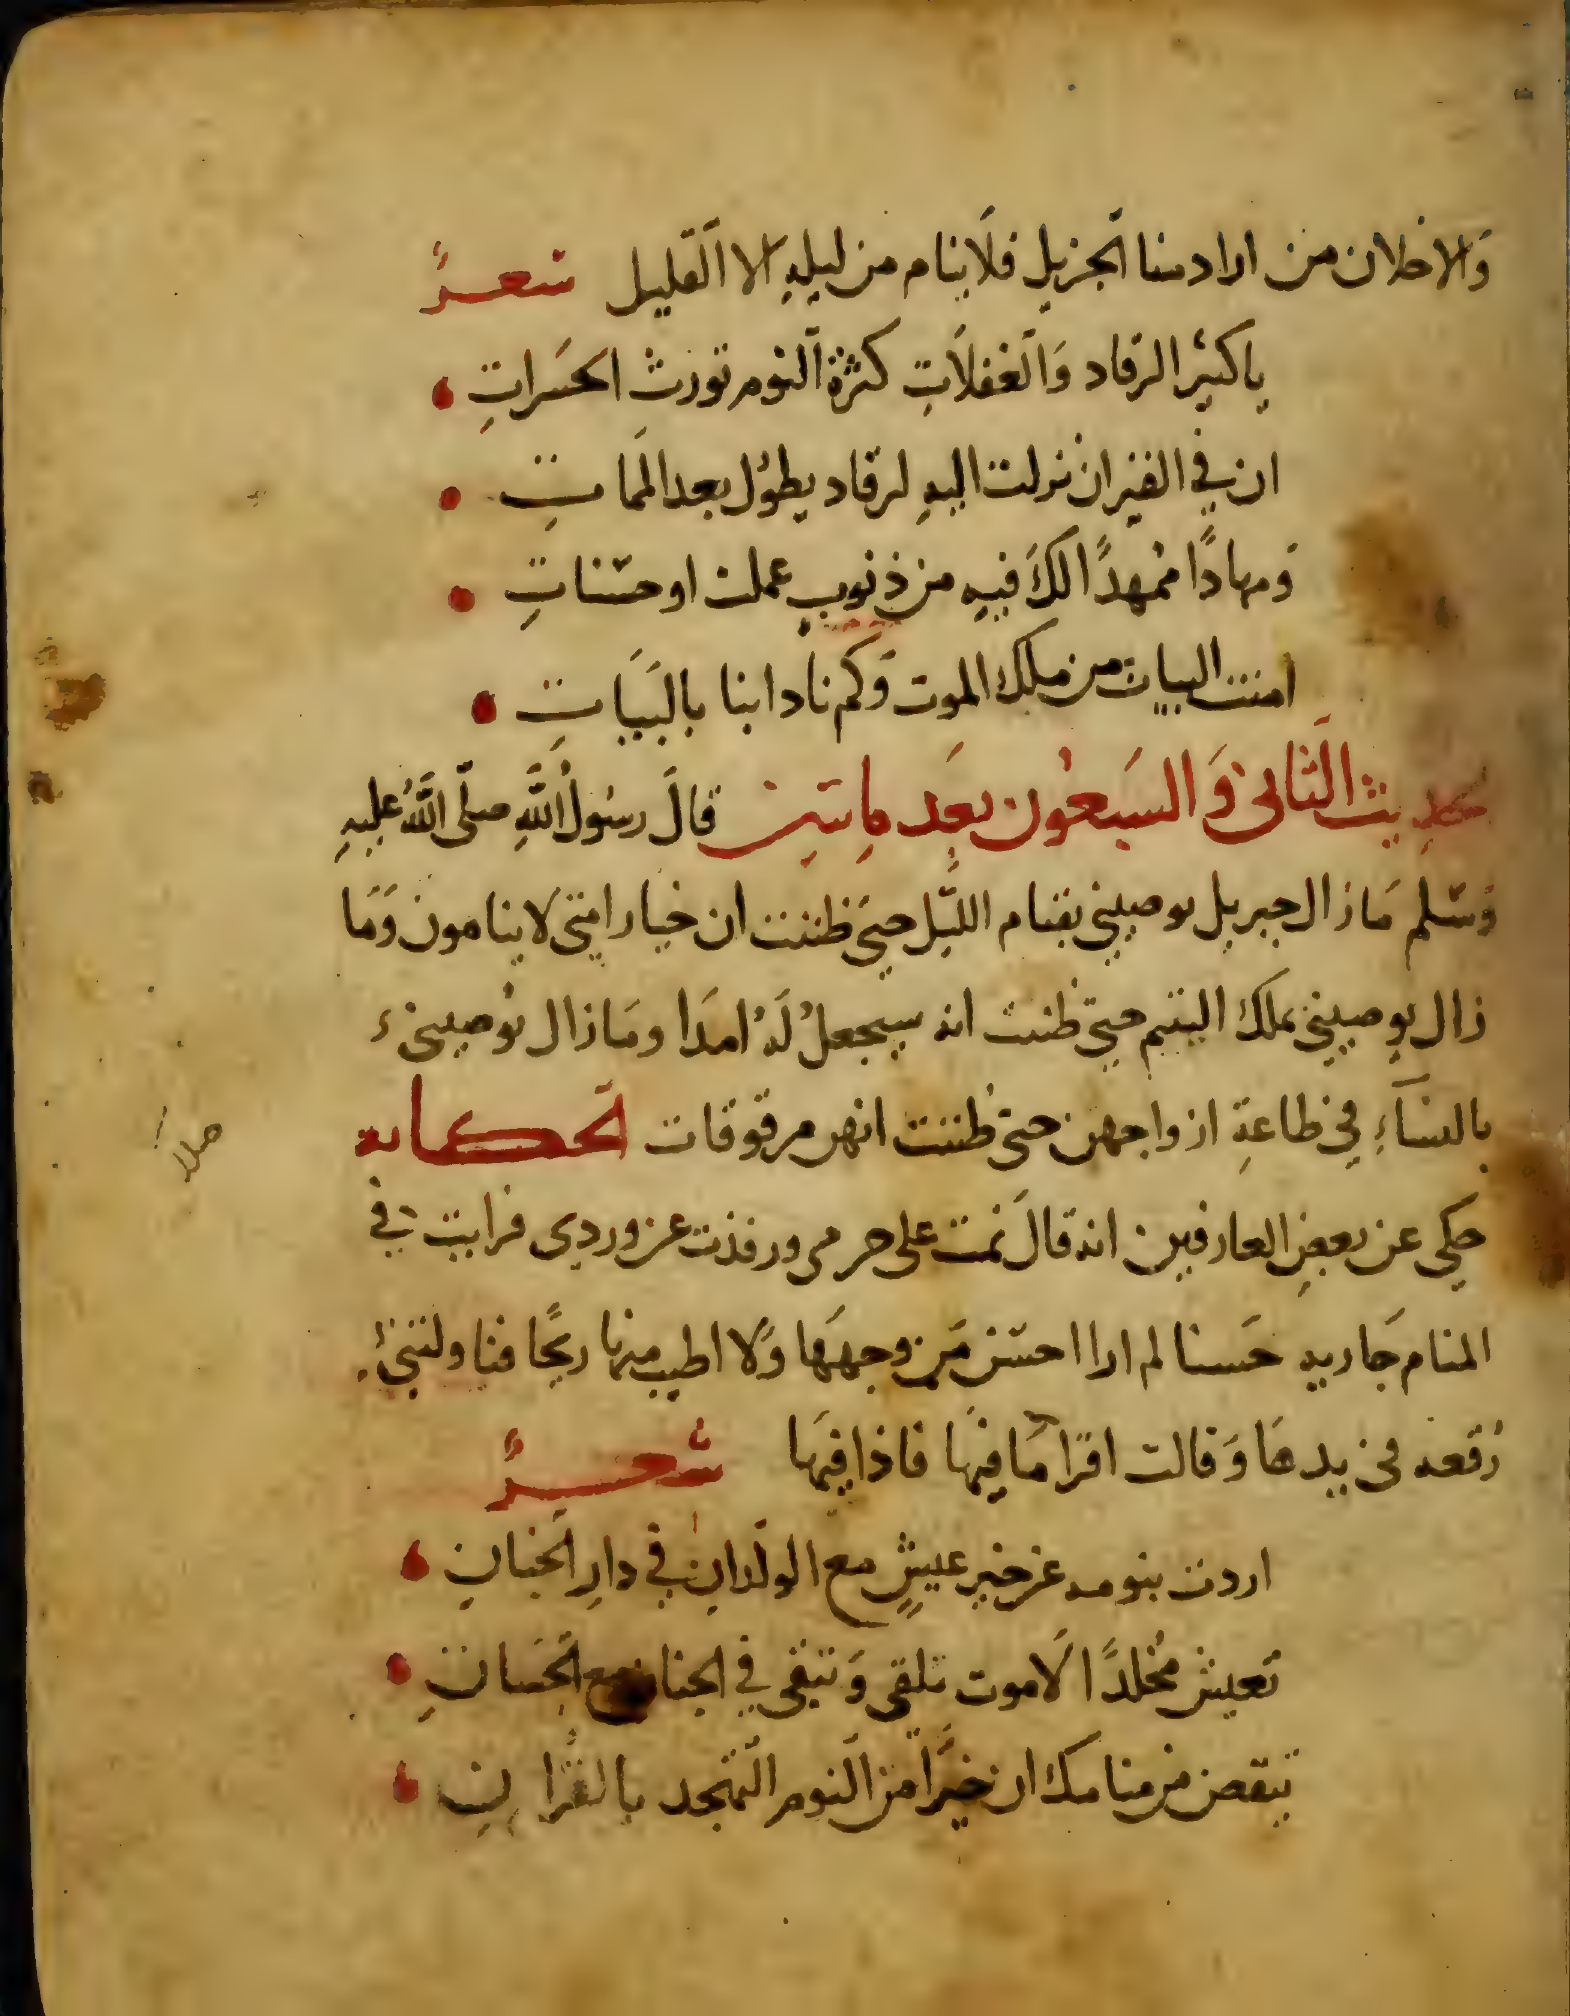 وَالاخلان من اراد منا الجزيل فلَا ينام من ليلهِ الا القليل شعرٌ
يا كثير الرقاد وَالغفلَات كثرة النوم تورث الحَسَراتِ
ان في القبر ان نزلت اليهِ لرقاد يطوُل بعد المماتِ
وَمهادًا ممُهدًا لكَ فيهِ من ذنوبٍ عملت او حسناتِ
امنت البيات من ملك الموت وَكم نادا بنا بالبَيَاتِ
الحديث الثاني وَالسَبعوُن بعَد ماِئتين قالَ رسوُلُ اللَّهِ صلّى اللَّهُ عليهِ
وَسلم مَا زال جبريل يوصيني بقيام الليّل حتى ظننت ان خيار امتى لا ينامون وَمَا
زال يوصيني بملك اليتيم حتى ظننت انه سيجعلُ لَهُ امدَا ومَا زال يوُصيني
بالنسَآءِ في طاعةِ ازواجهن حتى ظننت انهن مرقوقات الحكاية
حكي عن بعضِ العارفين انه قالَ نمت على حرمي ورقدت عن وردى فرايت في
المنام جَارية حَسنا لم ارا احسَن مَن وجههَا وَلا اطيب منها ريحًا فناولتني
رُقعة فى يدهَا وَقالت اقرَا مَا فيهَا فاذا فيهَا شعرٌ
اردت بنومة عن خير عيشٍ مع الولدانِ في دارِ الجنانِ
تعيش مُخلدًا لَا موت تلقى وَتبقى في الجنان مع الحَسانِ
تيقض من منامك ان خيرًا من النوم التهجد بالقرانِ